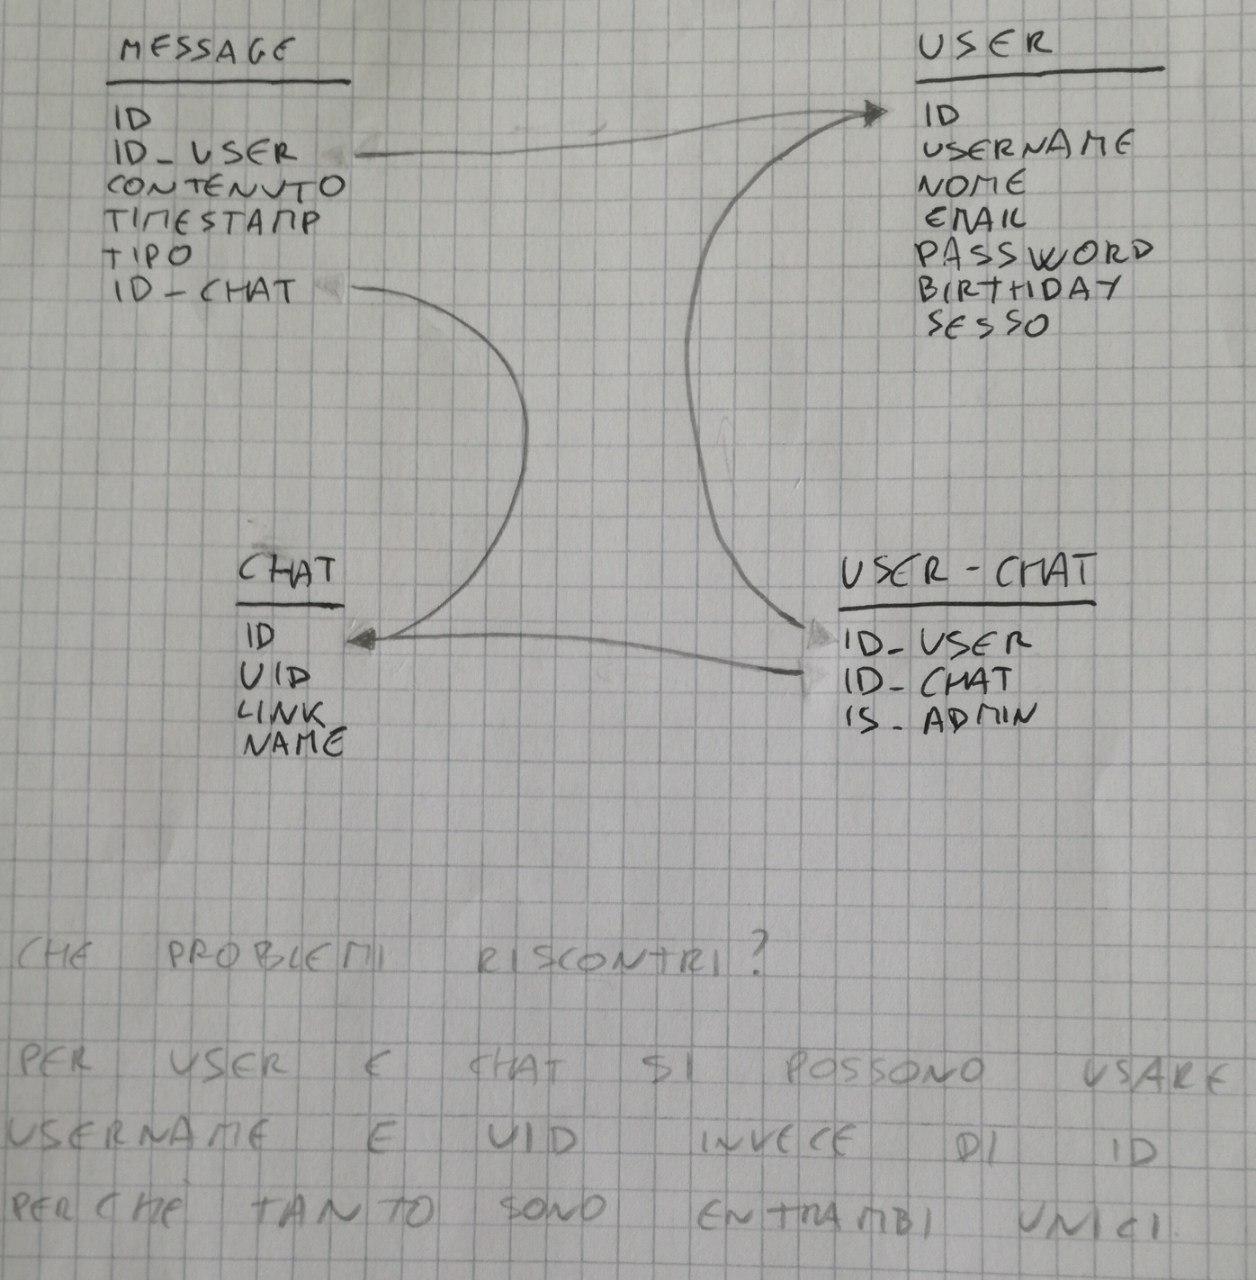 MESSAGE
ID
ID_USER
CONTENUTO
TIMESTAMP
TIPO
ID_CHAT
USER
ID
USERNAME
NOME
EMAIL
PASSWORD
BIRTHDAY
SESSO
CHAT
ID
UID
LINK
NAME
USER-CHAT
ID_USER
ID_CHAT
IS_ADMIN
CHE PROBLEMI RISCONTRI?
PER USER E CHAT SI POSSONO USARE
USERNAME E UID INVECE DI ID
PERCHÉ TANTO SONO ENTRAMBI UNICI